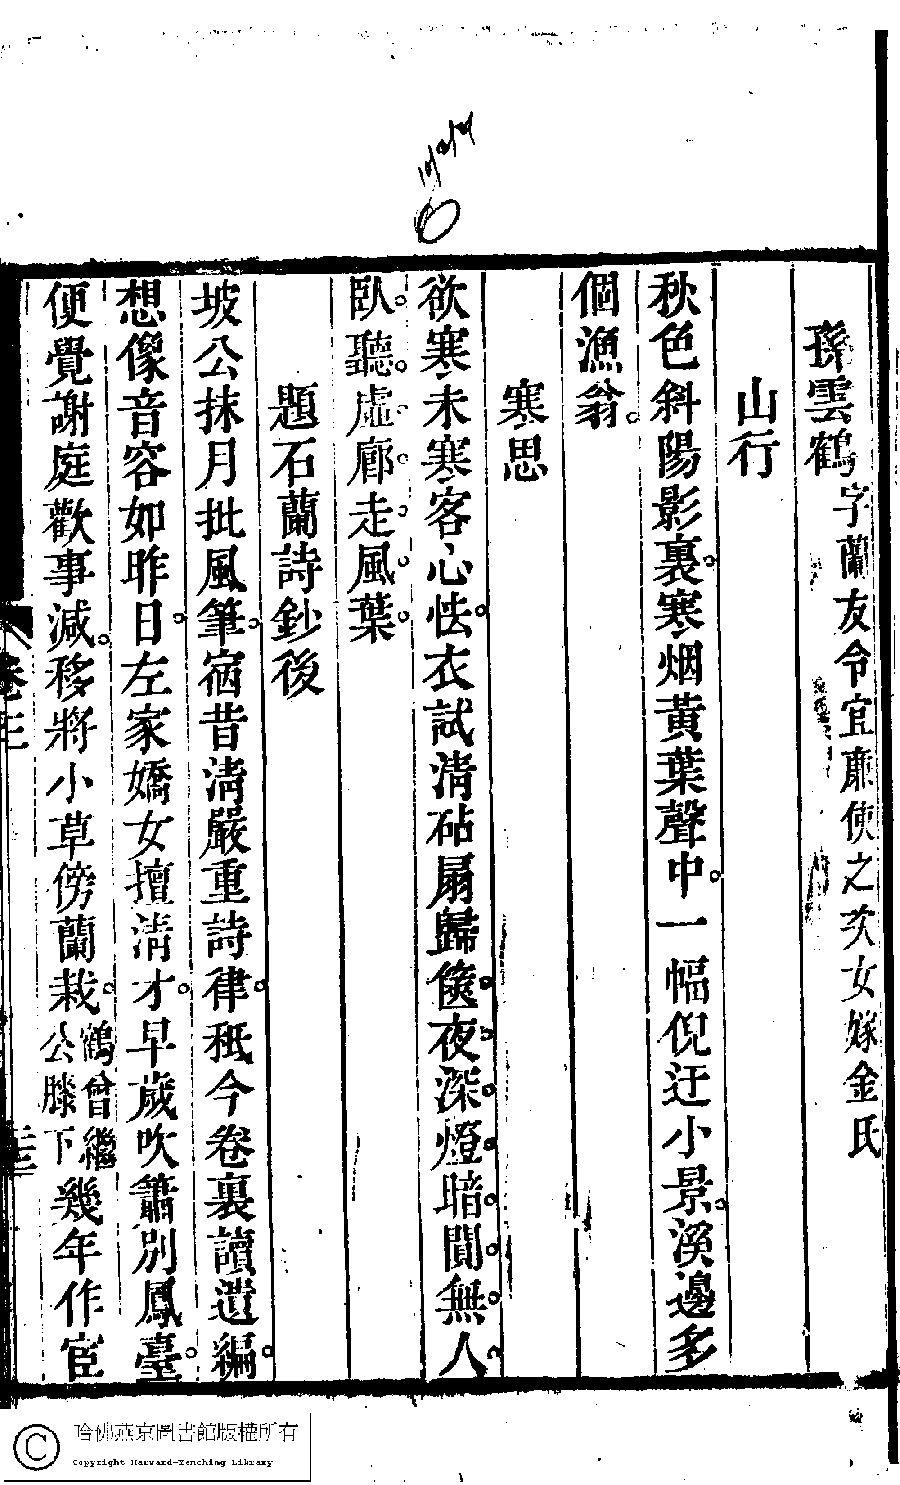 孫雲鶴字蘭友令宜廉使之次女嫁金氏
山行
秋色斜陽影裏。寒烟黃葉聲中。一幅倪迂小景。溪邊多
個漁翁。
寒思
欲寒未寒客心怯。衣試清砧扇歸篋。夜。深。燈。暗。閴。無。人。
臥。聽。虛。廊。走。風。葉。
題石蘭詩鈔後
坡公抹月批風筆。宿昔清嚴重詩律。秖今卷裏讀遺編。
想像音容如昨日。左家嬌女擅清才。早歲吹簫別鳳臺。
便覺謝庭歡事減。移將小草傍蘭栽。鶴曾繼公膝下幾年作宦
卷三
哈佛燕京圖書館版權所有
Copyright Harvard-Yenching Library